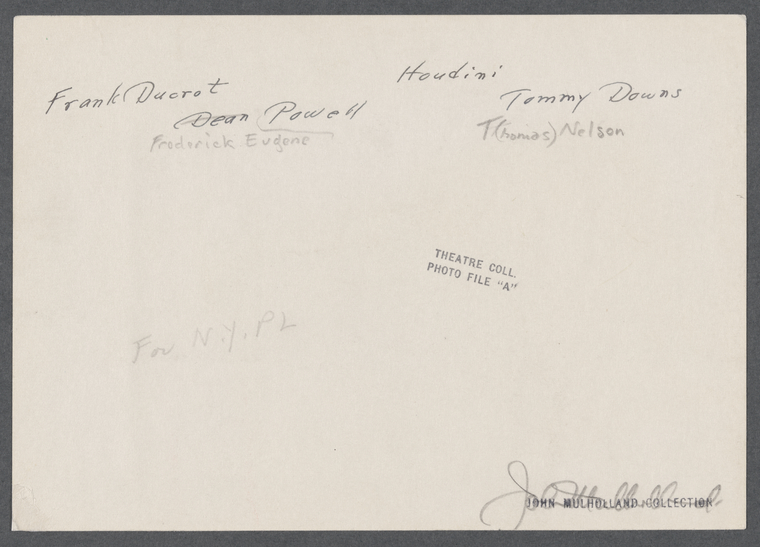 Frank Ducrot
Dean Powell
Frederick Eugene
Houdini
Tommy Downs
T(homas) Nelson
THEATRE COLL.
PHOTO FILE "A"
For N.Y.PL
John Mulholland
JOHN MULHOLLAND COLLECTION